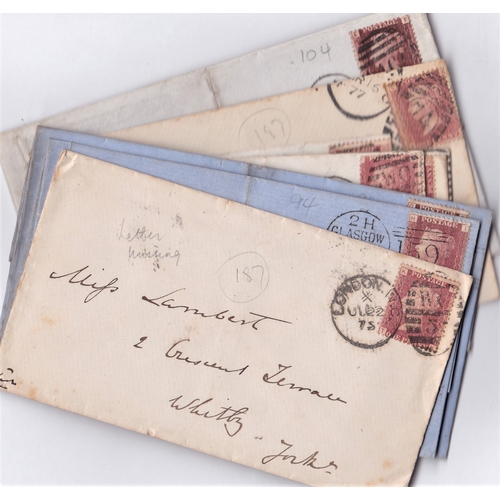 104
16
77
187
94
2 H
GLASGOW
POSTAGE
159
Letter
missing
187
LONDON
X
JU 22
75
Miss Lambert
2 Crescent Terrace
Whitby
Yorks